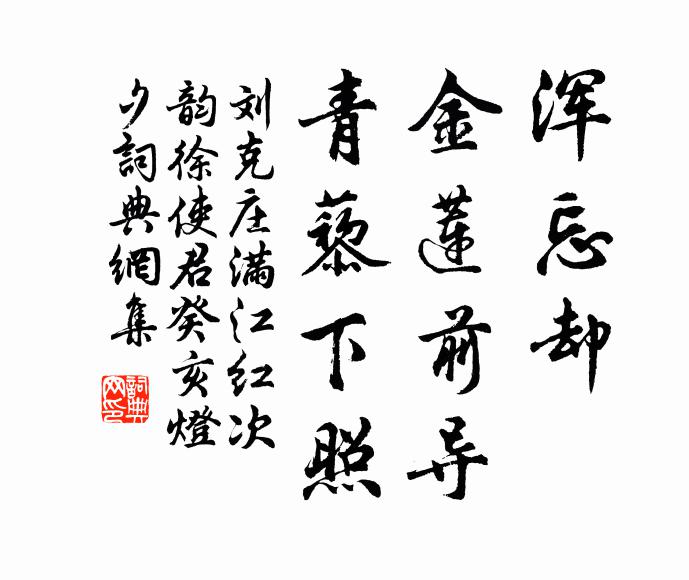 浑忘却
金莲前导
青藜下照
刘克庄满江红次
韵徐使君癸亥燈
夕詞典網集
詞典
网印